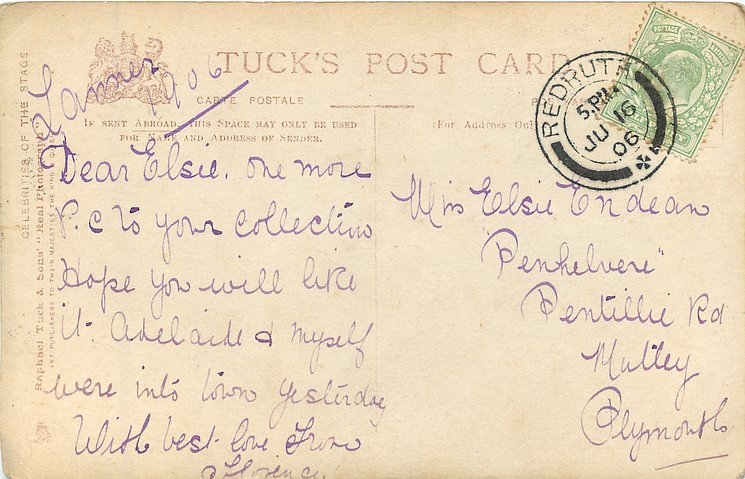 TUCK'S POST CARD
CARTE POSTALE
IF SENT ABROAD, THIS SPACE MAY ONLY BE USED
FOR NAME AND ADDRESS OF SENDER.
(For Address Only
CELEBRITIES OF THE STAGE
Raphael Tuck & Sons' "Real Photograph"
ART PUBLISHERS TO THEIR MAJESTIES THE KING &
REDRUTH
5.PM
JU 16
06
POSTAGE
Lanner
1906
Dear Elsie. one more
P.C to your collection
Hope you will like
it. Adelaide & myself
were into town yesterday
With best love from
Florence.
Miss Elsie Endean
"Penhelvere"
Pentillie Rd
Mutley
Plymouth